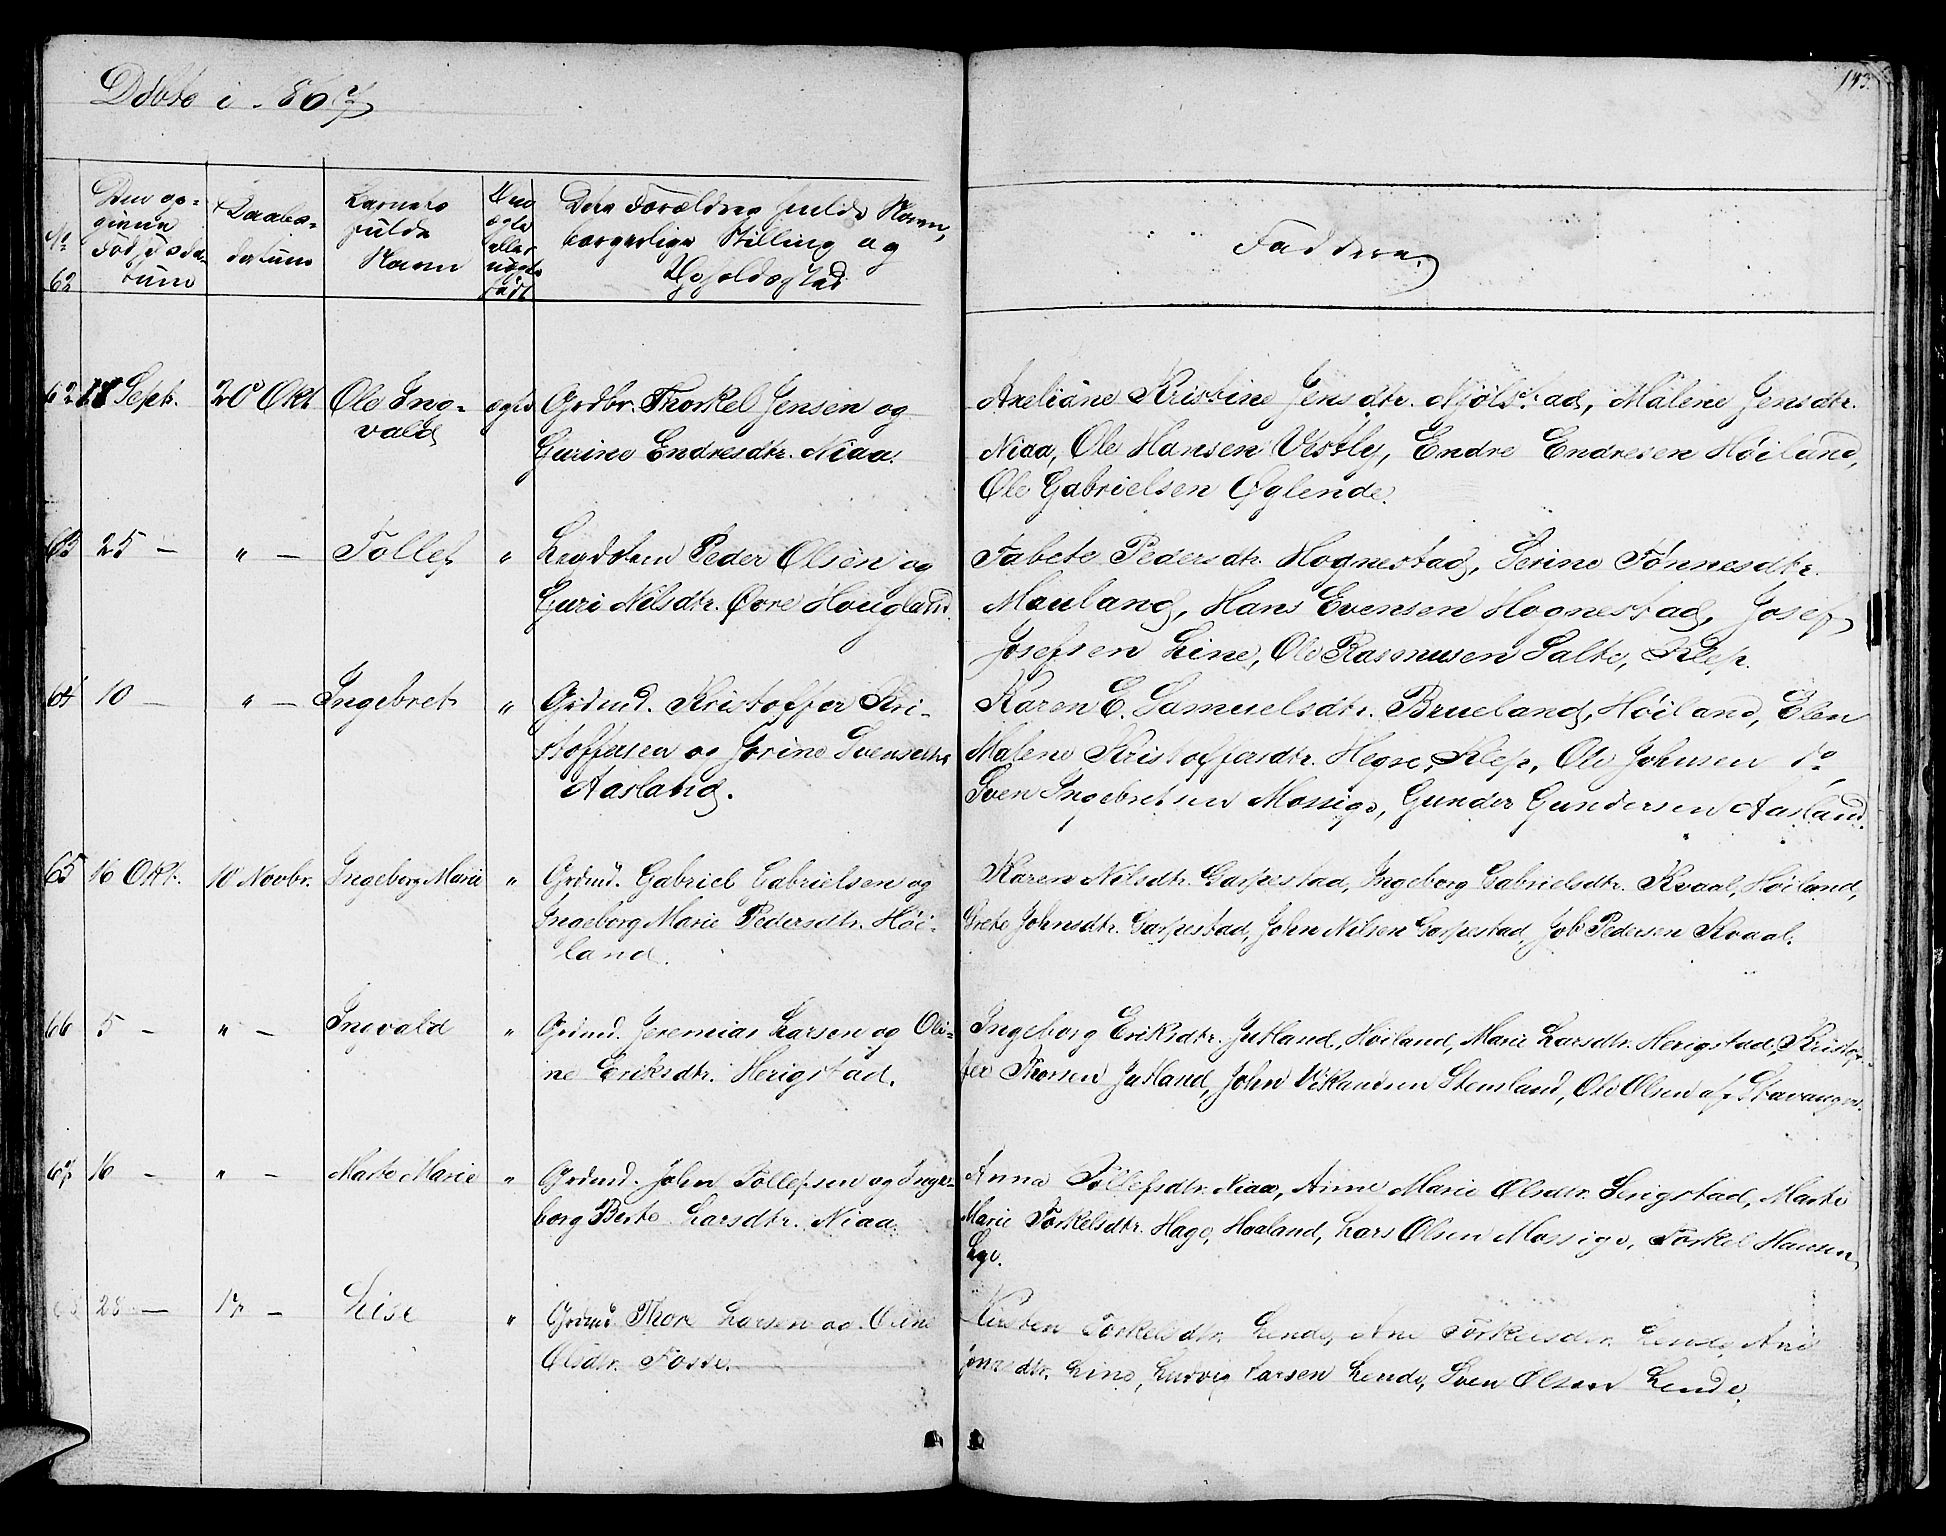 Döbte i 1867
143.
No
62
Den op-
givne
Födselsda-
tum
Daabs-
datum
Barnets
fulde
Navn
Om
ægte
eller
uægte
født
Dets Forældres fulde Navn,
borgerlige Stilling og
Opholdsstad
Faddere.
62 18 Sept. 20 Okt Ole Ing- ægte Grdbr. Thorkel Jensen og
vald Gurine Endresdtr. Niaa.
Axeliane Kristine Jensdtr. Njölstad, Malene Jensdtr.
Niaa, Ole Hansen Vestly, Endre Endresen Höiland,
Ole Gabrielsen Øglende.
63 25 — " — Tollef " Legdslem Peder Olsen og
Guri Nilsdtr. Øvre Hougland.
Tabete Pedersdtr. Hognestad, Serine Tönnesdtr.
Mauland, Hans Evensen Hognestad, Josef
Josefsen Line, Ole Rasmusen Salte, Klep.
64 10 — " — Ingebret " Grdmd. Kristoffer Kri-
stoffersen og Jorine Svensdtr
Aasland.
Karen E. Samuelsdtr. Brueland, Höiland, Elen
Malene Kristoffersdtr. Hegre, Klep, Ole Johnsen do,
Sven Ingebretsen Mossige, Gunder Gundersen Aasland.
65 16 Okt. 10 Novbr. Ingeborg Marie " Grdmd. Gabriel Gabrielsen og
Ingeborg Marie Pedersdtr. Höi-
land.
Karen Nilsdtr. Garpestad, Ingeborg Gabrielsdtr. Kvaal, Höiland,
Grete Johnsdtr. Garpestad, John Nilsen Garpestad, Job Pedersen Kvaal.
66 5 — " — Ingvald " Grdmd. Jeremias Larsen og Oli-
ne Eriksdtr. Herigstad.
Ingeborg Eriksdtr. Jutland, Höiland, Marie Larsdtr. Herigstad, Kristof-
fer Thorsen Jutland, John Vikandsen Stensland, Ole Olsen af Stavanger.
67 16 — " — Marte Marie " Grdmd. John Tollefsen og Inge-
borg Berte Larsdtr. Niaa.
Anna Tollefsdtr. Niaa, Anne Marie Olsdtr. Serigstad, Marte
Marie Torkelsdtr. Hage, Haaland, Lars Olsen Mossige, Torkel Hansen
Lge.
68 28 — 17 — Lise " Grdmd Thore Larsen og Oline
Olsdtr. Fosse.
Kirsten Torkelsdtr. Lende, Ane Torkelsdtr. Lende, Ane
Jonasdtr. Line, Ludvig Larsen Lende, Sven Olsen Lende.